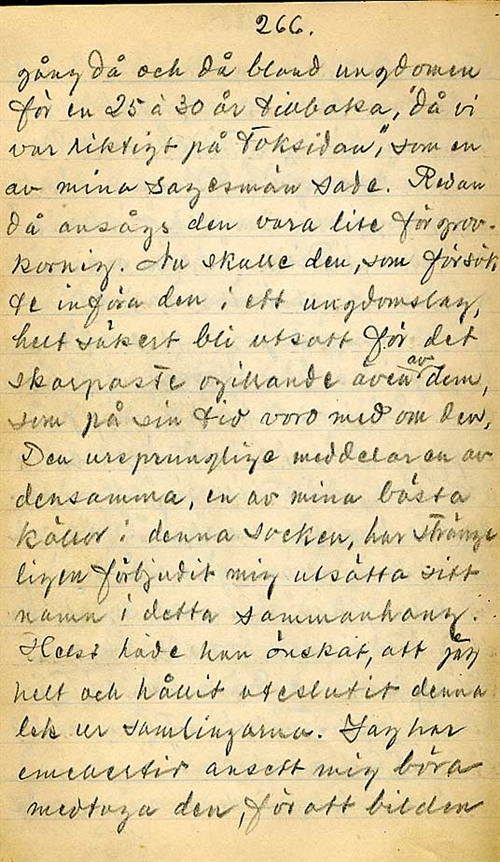 266.
gång då och då bland ungdomen
för en 25 à 30 år tillbaka, "då vi
var riktigt på Toksidan", som en
av mina sagesmän sade. Redan
då ansågs den vara lite för grov-
kornig. Nu skulle den, som försök
te införa den i ett ungdomslag,
helt säkert bli utsatt för det
skarpaste ogillande även av dem,
som på sin tid voro med om den.
Den ursprunglige meddelaren av
densamma, en av mina bästa
källor i denna socken, har stränge
ligen förbjudit mig utsätta sitt
namn i detta sammanhang.
Helst hade han önskat, att jag
helt och hållit uteslutit denna
lek ur samlingarna. Jag har
emellertid ansett mig böra
medtaga den, för att bilden